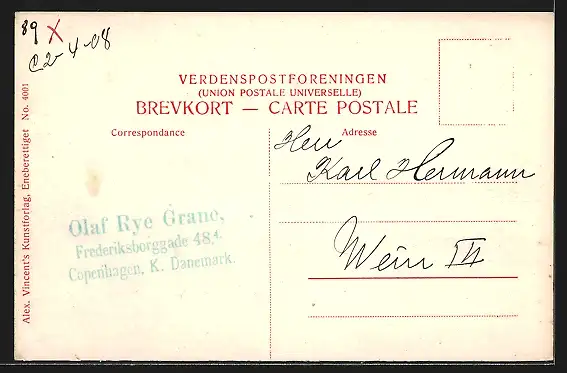 89 X
C 2v 4-08
VERDENSPOSTFORENINGEN
(UNION POSTALE UNIVERSELLE)
BREVKORT — CARTE POSTALE
Correspondance
Adresse
Herr
Karl Hermann
Wein III
Olaf Rye Grane,
Frederiksborggade 48,4.
Copenhagen, K. Danemark.
Alex. Vincent's Kunstforlag, Eneberettiget No. 4001